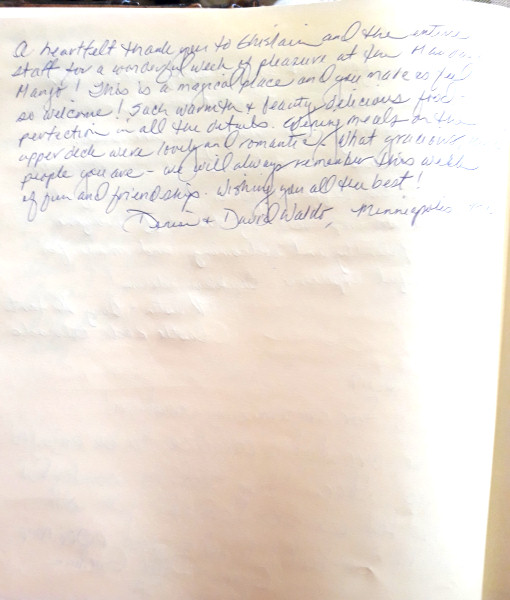 A heartfelt thank you to Ghislain and the entire
staff for a wonderful week of pleasure at the
Mango! This is a magical place and you make us feel
so welcome! Such warmth & beauty, delicious
perfection in all the details. Evening meals on the
upper deck were lovely and romantic. What gracious
people you are - we will always remember this week
of fun and friendship. Wishing you all the best!
& David Waldo, Minneapolis